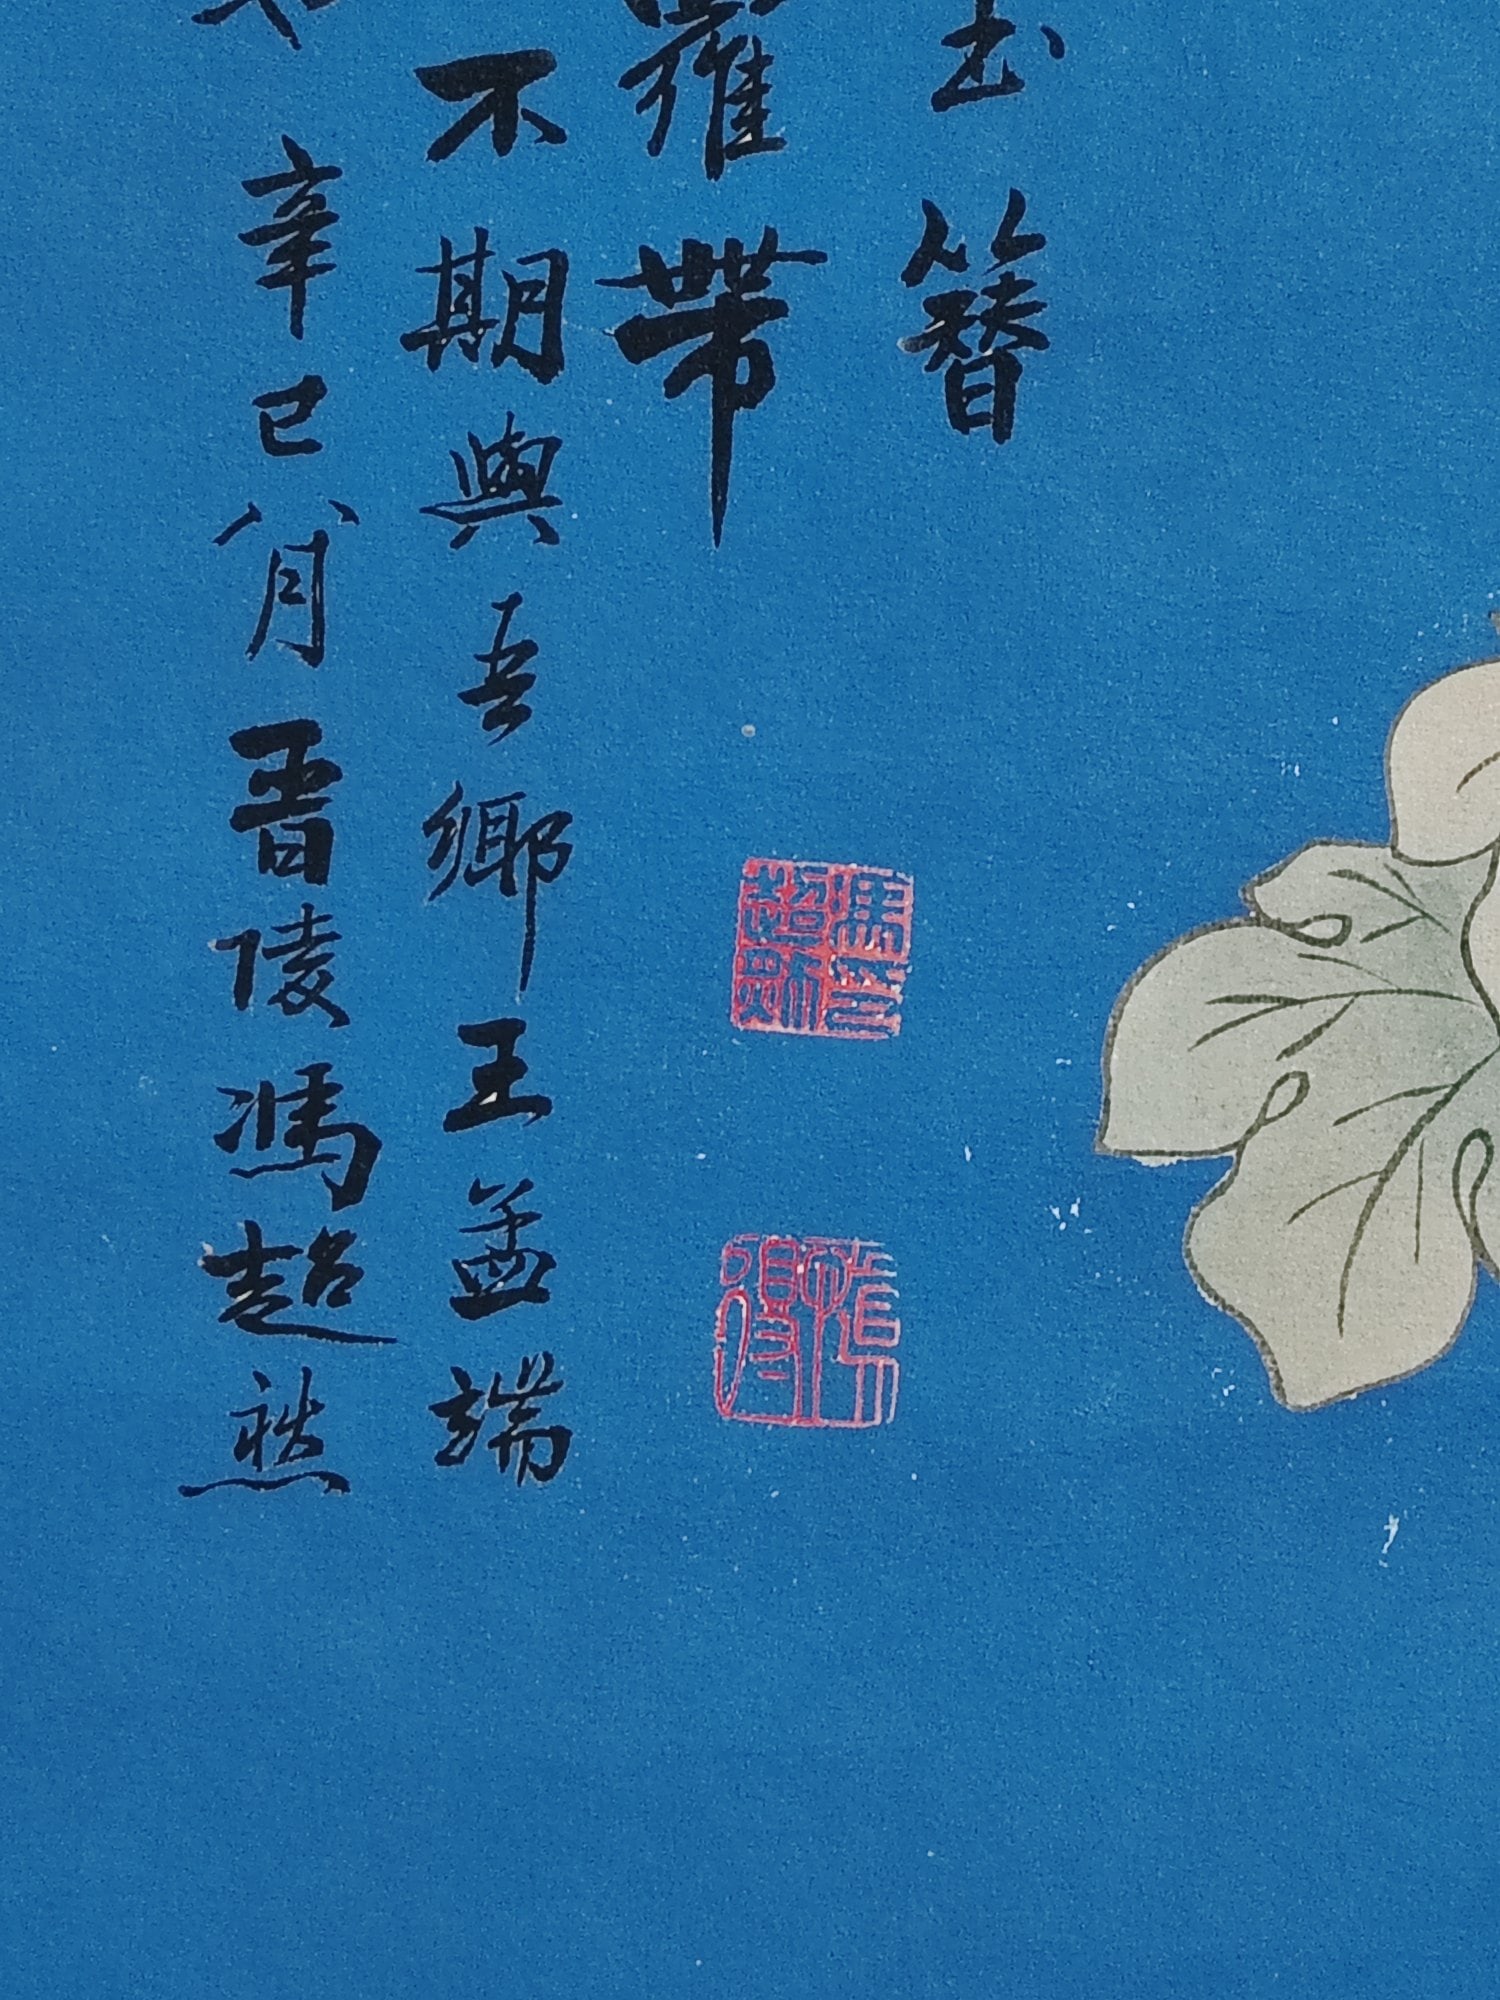 玉簪
羅帶
不期與吾鄉王孟端
辛巳八月晋陵馮超然
馮超然印